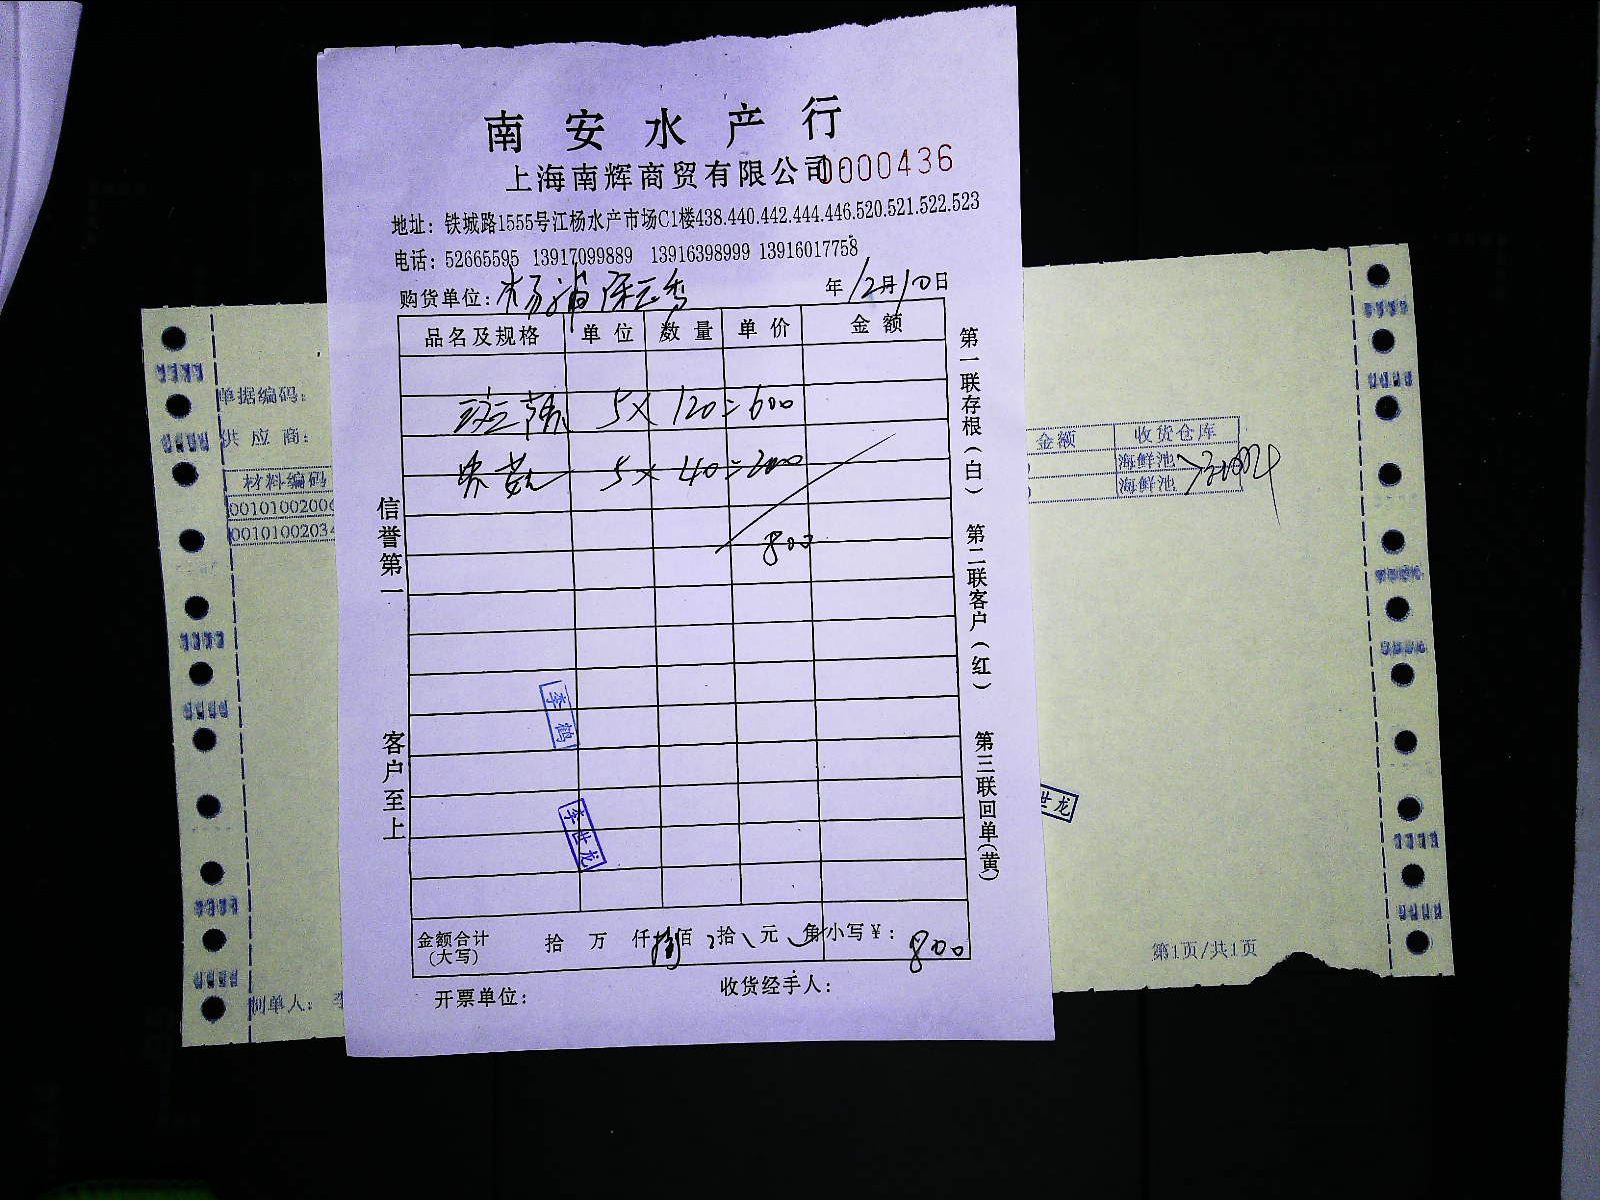 南安水产行
上海南辉商贸有限公司 0000436
地址：铁城路1555号江杨水产市场C1楼438.440.442.444.446.520.521.522.523
电话：52665595 13917099889 13916398999 13916017758
购货单位：杨浦 年12月10日
品名及规格 单位 数量 单价 金额
5×120=600
5×40=200
800
金额合计（大写） 拾 万 仟 捌佰 拾 元 角 小写￥：800
开票单位： 收货经手人：
信誉第一
客户至上
第一联存根（白）
第二联客户（红）
第三联回单（黄）
李鹤
李世龙
单据编码：
供应商：
材料编码
00101002006
0010100203
制单人：李
金额 收货仓库
海鲜池
海鲜池
世龙
第1页/共1页